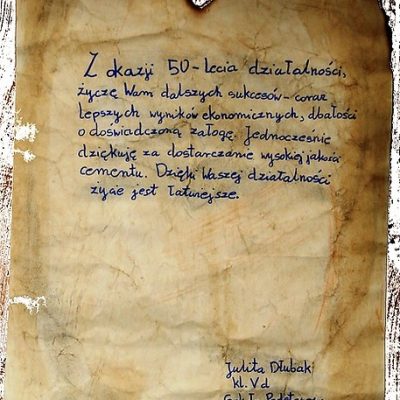 Z okazji 50-lecia działalności,
życzę Wam dalszych sukcesów - coraz
lepszych wyników ekonomicznych, dbałości
o doświadczoną załogę. Jednocześnie
dziękuję za dostarczanie wysokiej jakości
cementu. Dzięki Waszej działalności
życie jest łatwiejsze.
Julita Dłubak
kl. V d